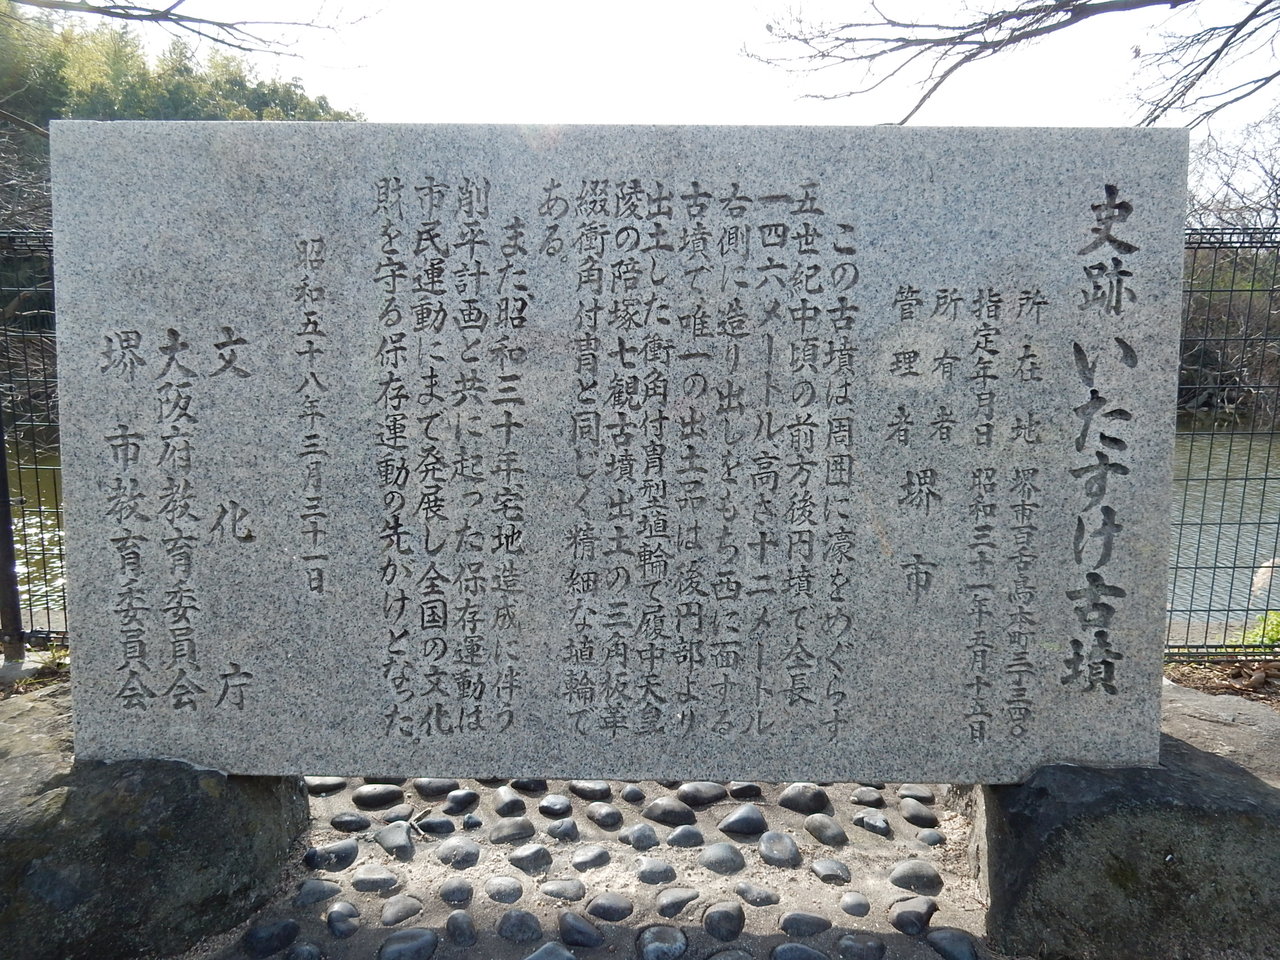 史跡 いたすけ古墳
所在地 堺市百舌鳥本町三-三四〇
指定年月日 昭和三十一年五月十五日
所有者
管理者 堺市
この古墳は周囲に濠をめぐらす
五世紀中頃の前方後円墳で全長
一四六メートル高さ十二メートル
右側に造り出しをもち西に面する
古墳で唯一の出土品は後円部より
出土した衝角付冑型埴輪で履中天皇
陵の陪塚七観古墳出土の三角板革
綴衝角付冑と同じく精細な埴輪で
ある。
また、昭和三十年宅地造成に伴う
削平計画と共に起った保存運動は
市民運動にまで発展し全国の文化
財を守る保存運動の先がけとなった。
昭和五十八年三月三十一日
文化庁
大阪府教育委員会
堺市教育委員会